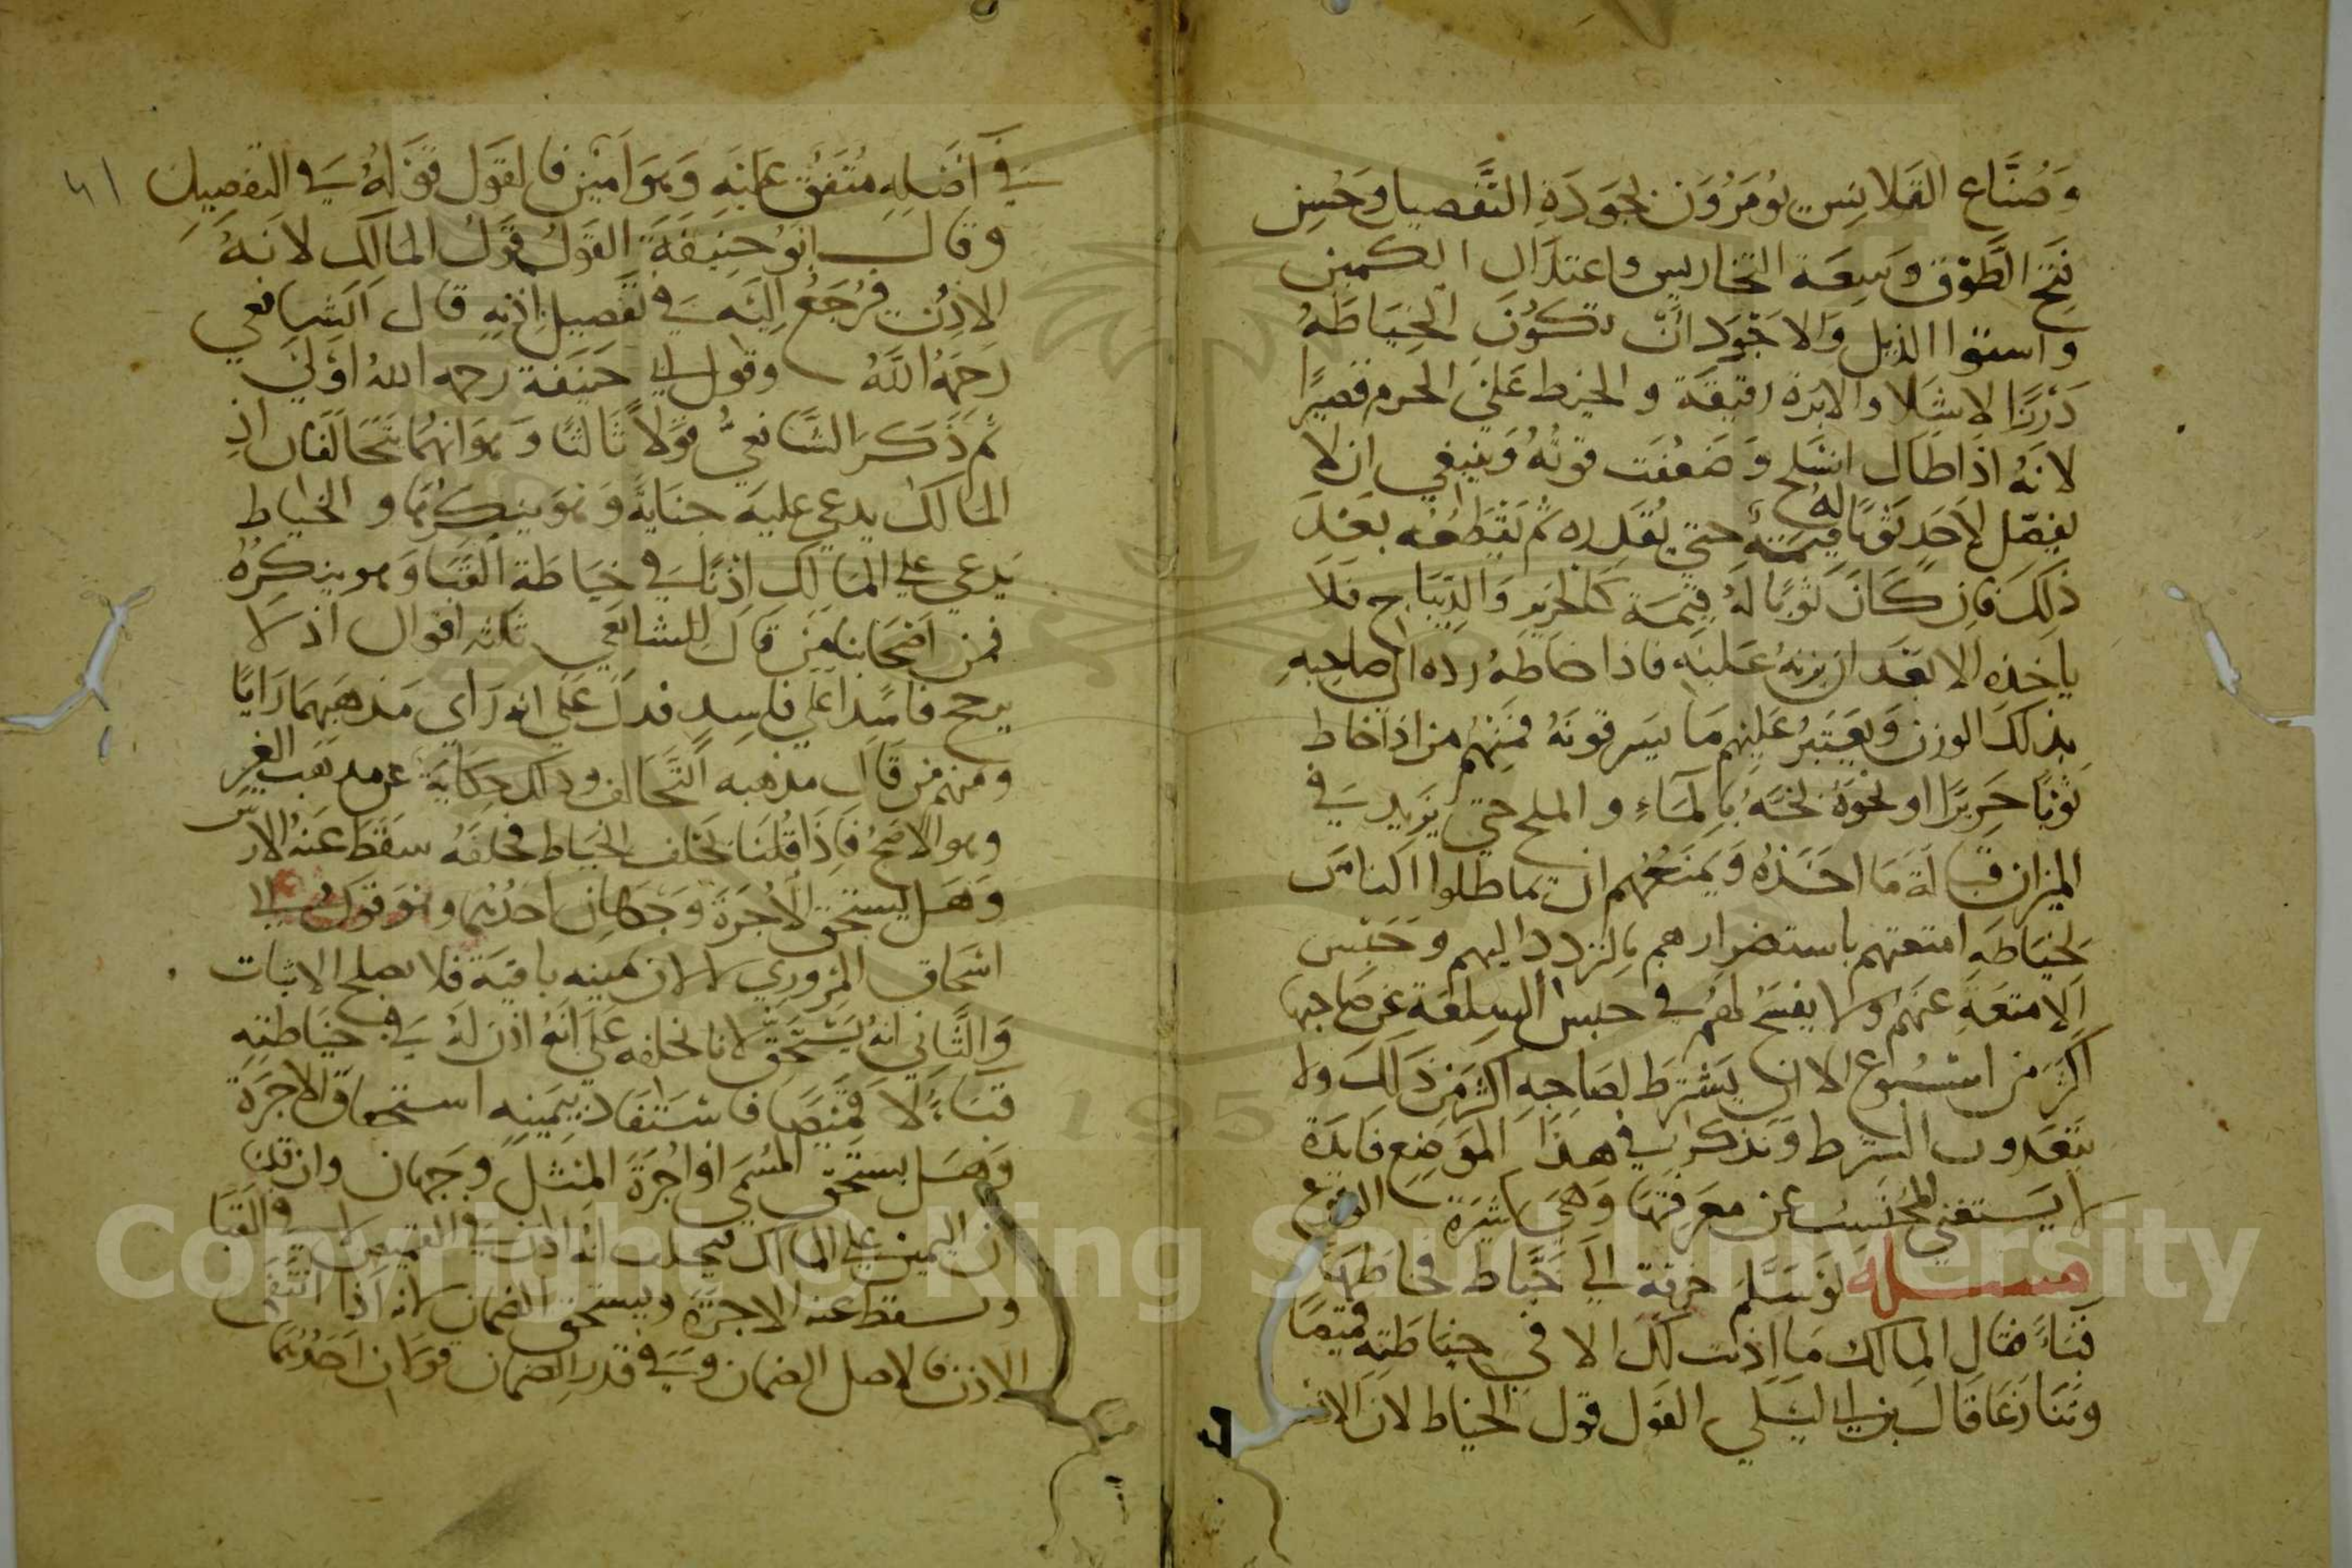 وَصُنَّاع القَلانِسِ يؤمَرُونَ بجَودَةِ التَّفصيل وَحُسنِ
فَتحِ الطَّوْق وسِعَة التخاريس واعتدَال الكمين
واستوا الذيل والاجوَد ان تكُونَ الخِيَاطَةُ
دَرْزًا لا شَلا والابرة رقيقة والخيط على الخرم قصيرًا
لانهُ اذَا طَال انسَلَح وَضَعُفت قوتُهُ وَينبغي ان لا
يفصِّل لاحَدٍ ثوبًا له قيمَةٌ حتى يُقدره ثم يَقطعُه بعْدَ
ذلكَ فان كَانَ ثوبًا لهُ قيمَة كالحرير وَالديبَاج فلا
ياخذه الا بعْدَ ان يزنهُ عَليه فاذا خاطهُ رده الى صاحبهِ
بذلكَ الوزن وَيعتبرُ عَليهم مَا يَسرقونَهُ فمنهُم من اذا خاط
ثوبًا حَريرًا او نحوَهُ بخَّهُ بالمَاءِ والملح حتى يَزيد في
الميزان قبالةَ مَا اخَذهُ وَيمنعُهم ان يماطلوا الناسَ
بخيَاطَةِ امتعتهم باستضرارهم بالتردد اليهم وحَبْس
الامتعَةِ عنهُم ولا يفسَحُ لهُم في حبس السِلعَة عن صَاحبها
اكثرَ من اسْبُوع الا ان يَشْترطَ لصَاحبهِ اكثر من ذَلكَ ولا
يتعَدون الشرط وَنذكر في هذَا الموَضِع فائدَة
لا يَستغني المحتَسِبُ عن معرفتهَا وَهىَ كثيرَة الوقوع
مسئلة لوَ سَلَّم خرقة الى خَيَّاط فخاطَهَا
قبَاءً فقال المالك مَا اذنت لكَ الا في خيَاطتِه قميصًا
وتَنَازَعَا قالَ بن ابي ليْلى القول قول الخياط لان الاذن
في اصْلِهِ متفق عَليْهِ وَهوَ امين فالقول قوْلهُ في التفصيل ٤١
وقال ابُو حَنِيفَةَ القَولُ قَولُ المالك لانهُ
الاذن فرُجعُ اليْه في تفصِيل اذنهِ قال الشافعي
رَحمهُ اللَّهُ وقول ابي حَنيفة رحمه اللهُ اوْلى
ثم ذكرَ الشافعيُّ قوْلا ثالثًا وَهوَ انهُمَا يتحَالفان اذِ
المالك يدعي عليه جنايةً وَهوَ ينكرُهَا والخياط
يَدعي على المَالك اذنًا في خيَاطة القبَا وَهو ينكرُهُ
فمن اصْحَابنا مَن قَالَ للشافعي ثلثه اقوال اذ لا
يرجح فاسِدًا عَلى فاسِدٍ فدل عَلى انهُ رَاى مَذهبَهمَا رَايًا
ومنهم من قَال مذهبه التَّحالف وذلك حِكَايَة عن مذهب الغير
وهوَ الاصَحُّ فاذَا قلنَا يحلف الخيَاط فحلفَهُ سَقَطَ عَنهُ الارش
وَهَل يستحق الاُجرَةَ وَجهَان احَدُهُمَا وَهوَ قولُ ابي
اسْحاق المروزي لا لان يمينه باقية فلا يصلح الاثبات
وَالثاني انهُ يسْتحق لانا نحلفه عَلى انَهُ اذنَ لهُ في خيَاطتِه
قبَاءً لا قميصًا فاستفَادَ بيَمينهِ استحقاق الاجرَة
وَهَل يستَحق المُسَمى او اُجرَةَ المثل وَجهَان وان قلنا
ان اليمين على المالك فيحلف انهُ اذن في القميص لا في القبَا
ويسقط عنه الاجرَة ويستحق الضمان لانه اذا انتفى
الاذن فالاصل الضمان وَفي قدرِ الضمان قولان احَدُهُمَا